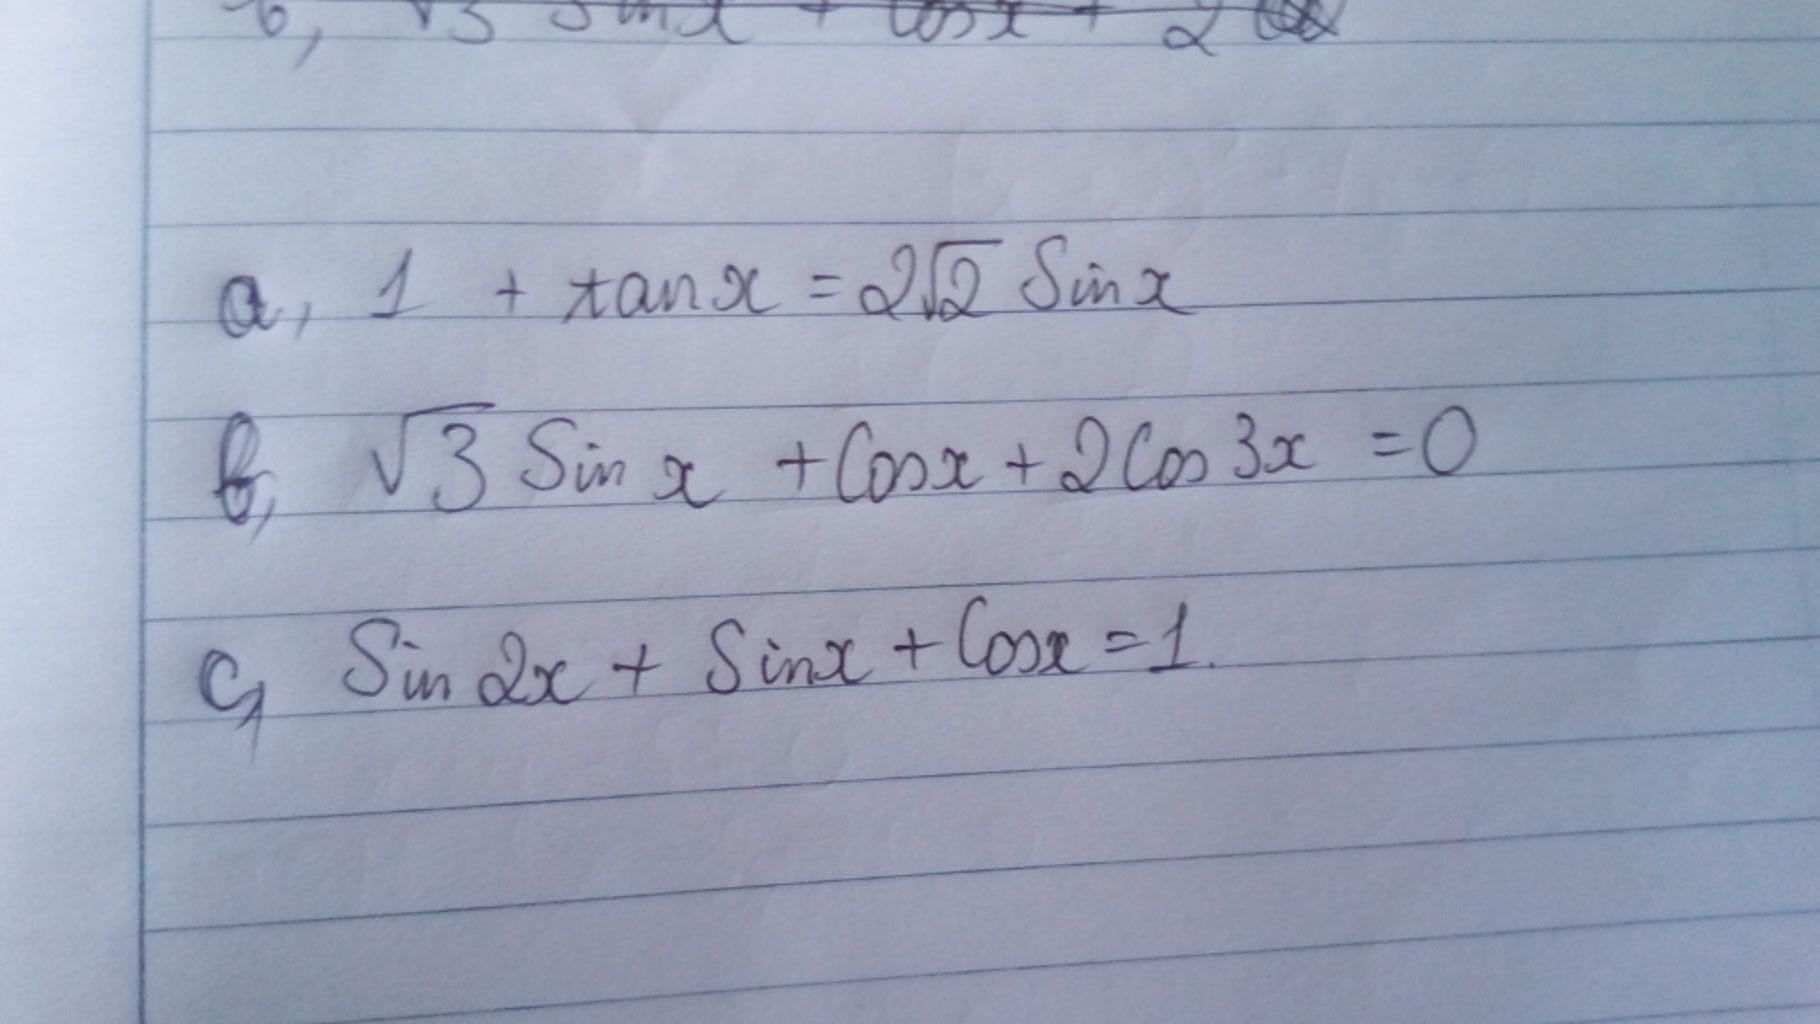 b, √3 Sin x + Cos x + 2
a, 1 + tan x = 2√2 Sin x
b, √3 Sin x + Cos x + 2 Cos 3x = 0
c, Sin 2x + Sin x + Cos x = 1.